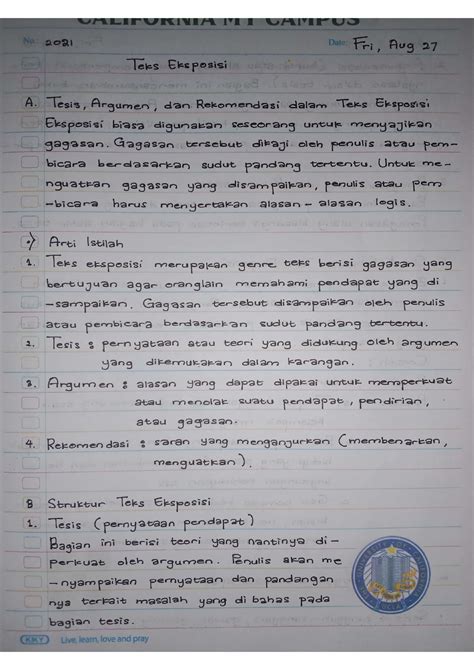 CALIFORNIA MY CAMPUS
No: 2021
Date: Fri, Aug 27
Teks Eksposisi
A. Tesis, Argumen, dan Rekomendasi dalam Teks Eksposisi
Eksposisi biasa digunakan seseorang untuk menyajikan
gagasan. Gagasan tersebut dikaji oleh penulis atau pem-
bicara berdasarkan sudut pandang tertentu. Untuk me-
nguatkan gagasan yang disampaikan, penulis atau pem
-bicara harus menyertakan alasan - alasan legis.
Arti Istilah
1. Teks eksposisi merupakan genre teks berisi gagasan yang
bertujuan agar oranglain memahami pendapat yang di
-sampaikan. Gagasan tersebut disampaikan oleh penulis
atau pembicara berdasarkan sudut pandang tertentu.
2. Tesis : pernyataan atau teori yang didukung oleh argumen
yang dikemukakan dalam karangan.
3. Argumen : alasan yang dapat dipakai untuk memperkuat
atau menolak suatu pendapat, pendirian,
atau gagasan.
4. Rekomendasi : saran yang menganjurkan (membenarkan,
menguatkan).
B Struktur Teks Eksposisi
1. Tesis (pernyataan pendapat)
Bagian ini berisi teori yang nantinya di-
perkuat oleh argumen. Penulis akan me
-nyampaikan pernyataan dan pandangan
nya terkait masalah yang di bahas pada
bagian tesis.
UCLA
KKY Live, learn, love and pray